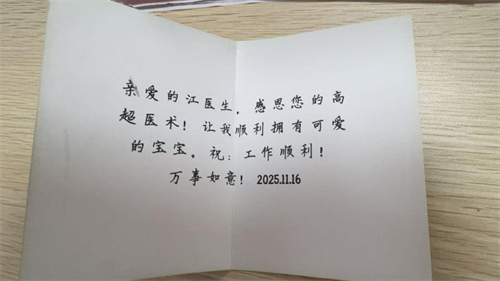 亲爱的江医生，感恩您的高
超医术！让我顺利拥有可爱
的宝宝。祝：工作顺利！
万事如意！2025.11.16